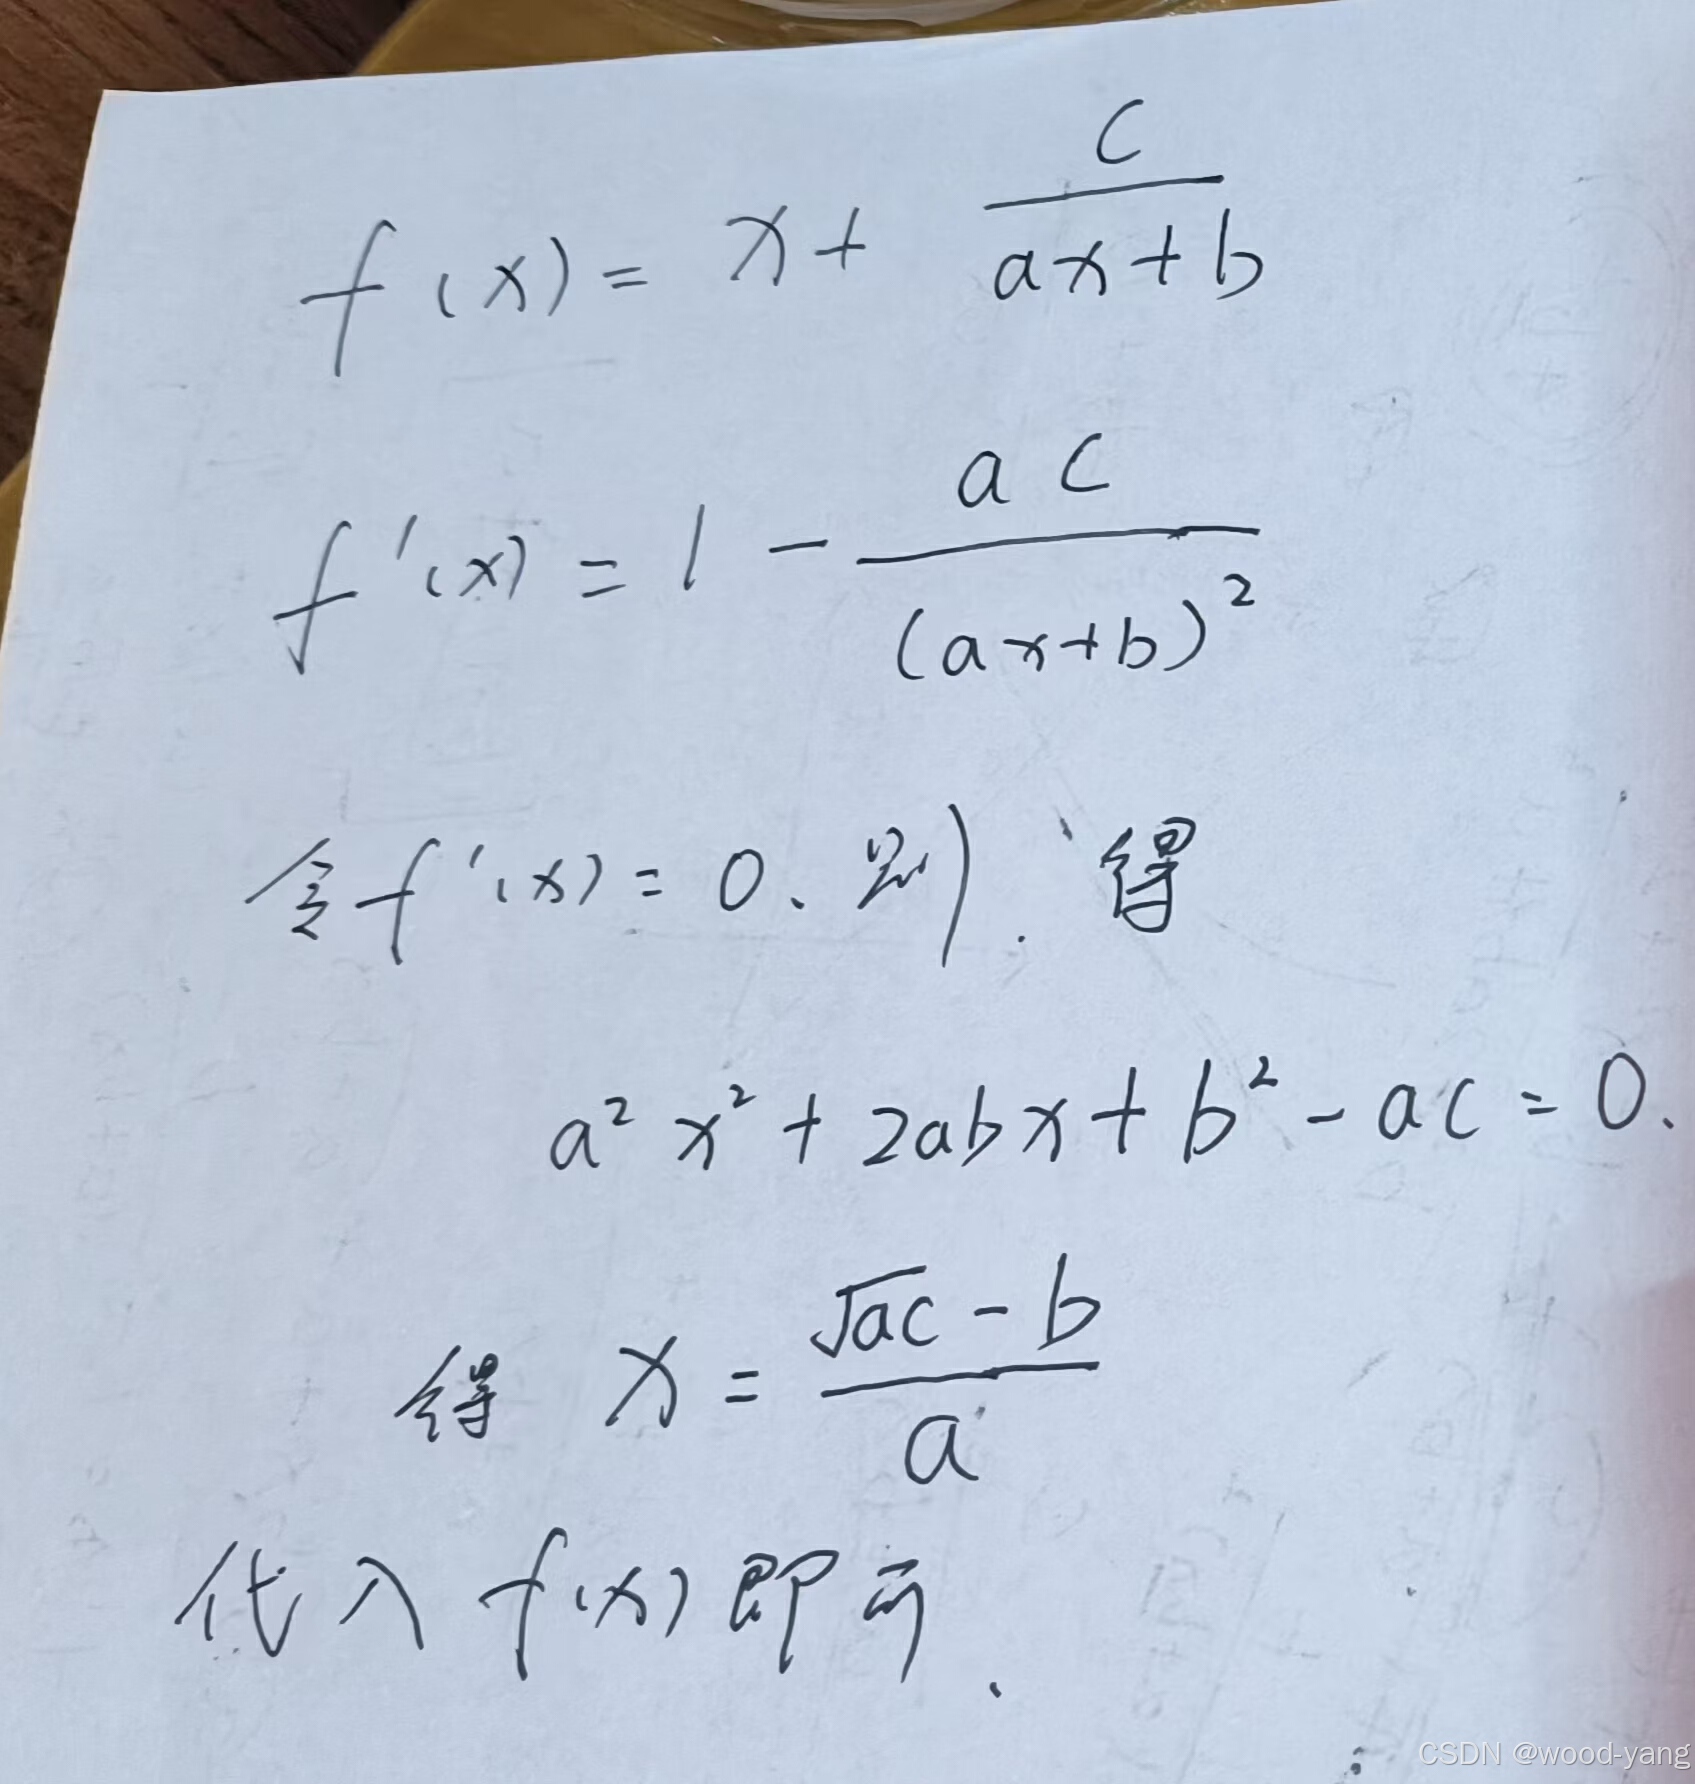 f(x) = x + \frac{c}{ax+b}
f'(x) = 1 - \frac{ac}{(ax+b)^2}
令f'(x) = 0、则. 得
a^2x^2 + 2abx + b^2 - ac = 0.
得 x = \frac{\sqrt{ac} - b}{a}
代入 f(x) 即可、
CSDN @wood-yang